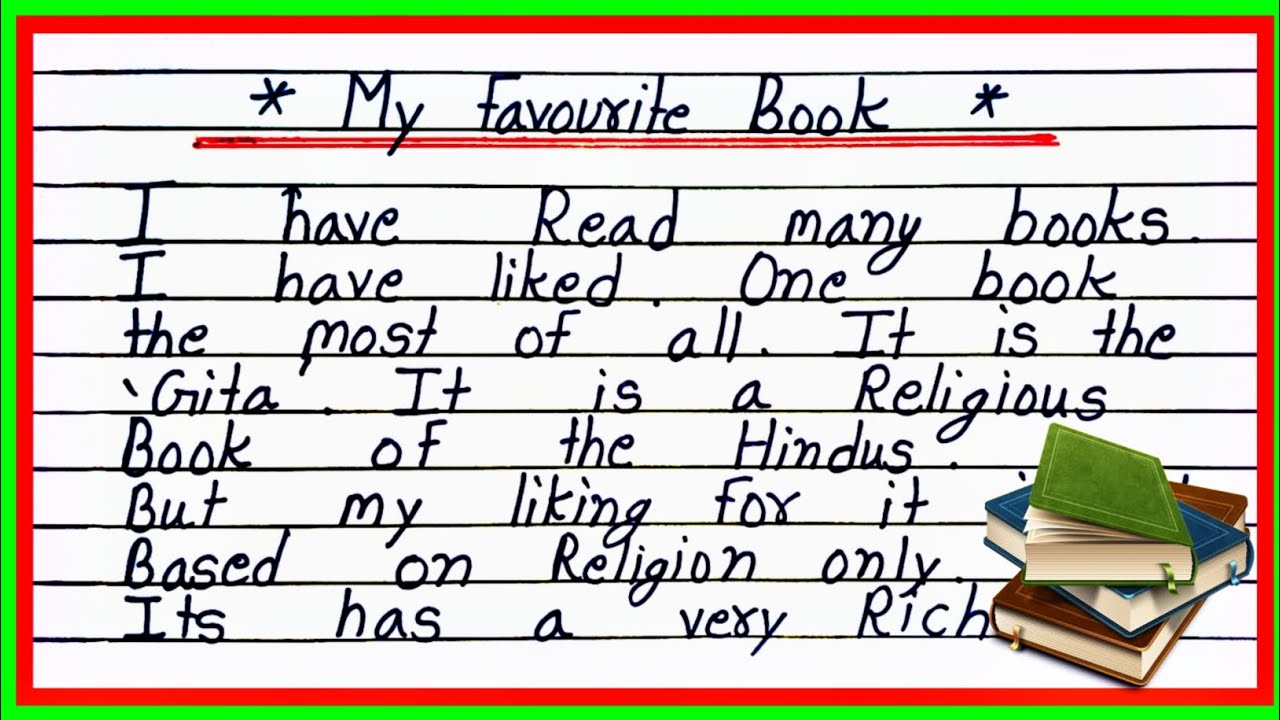 * My Favourite Book *
I have Read many books.
I have liked. One book
the most of all. It is the
'Gita'. It is a Religious
Book of the Hindus.
But my liking for it
Based on Religion only.
Its has a very Rich